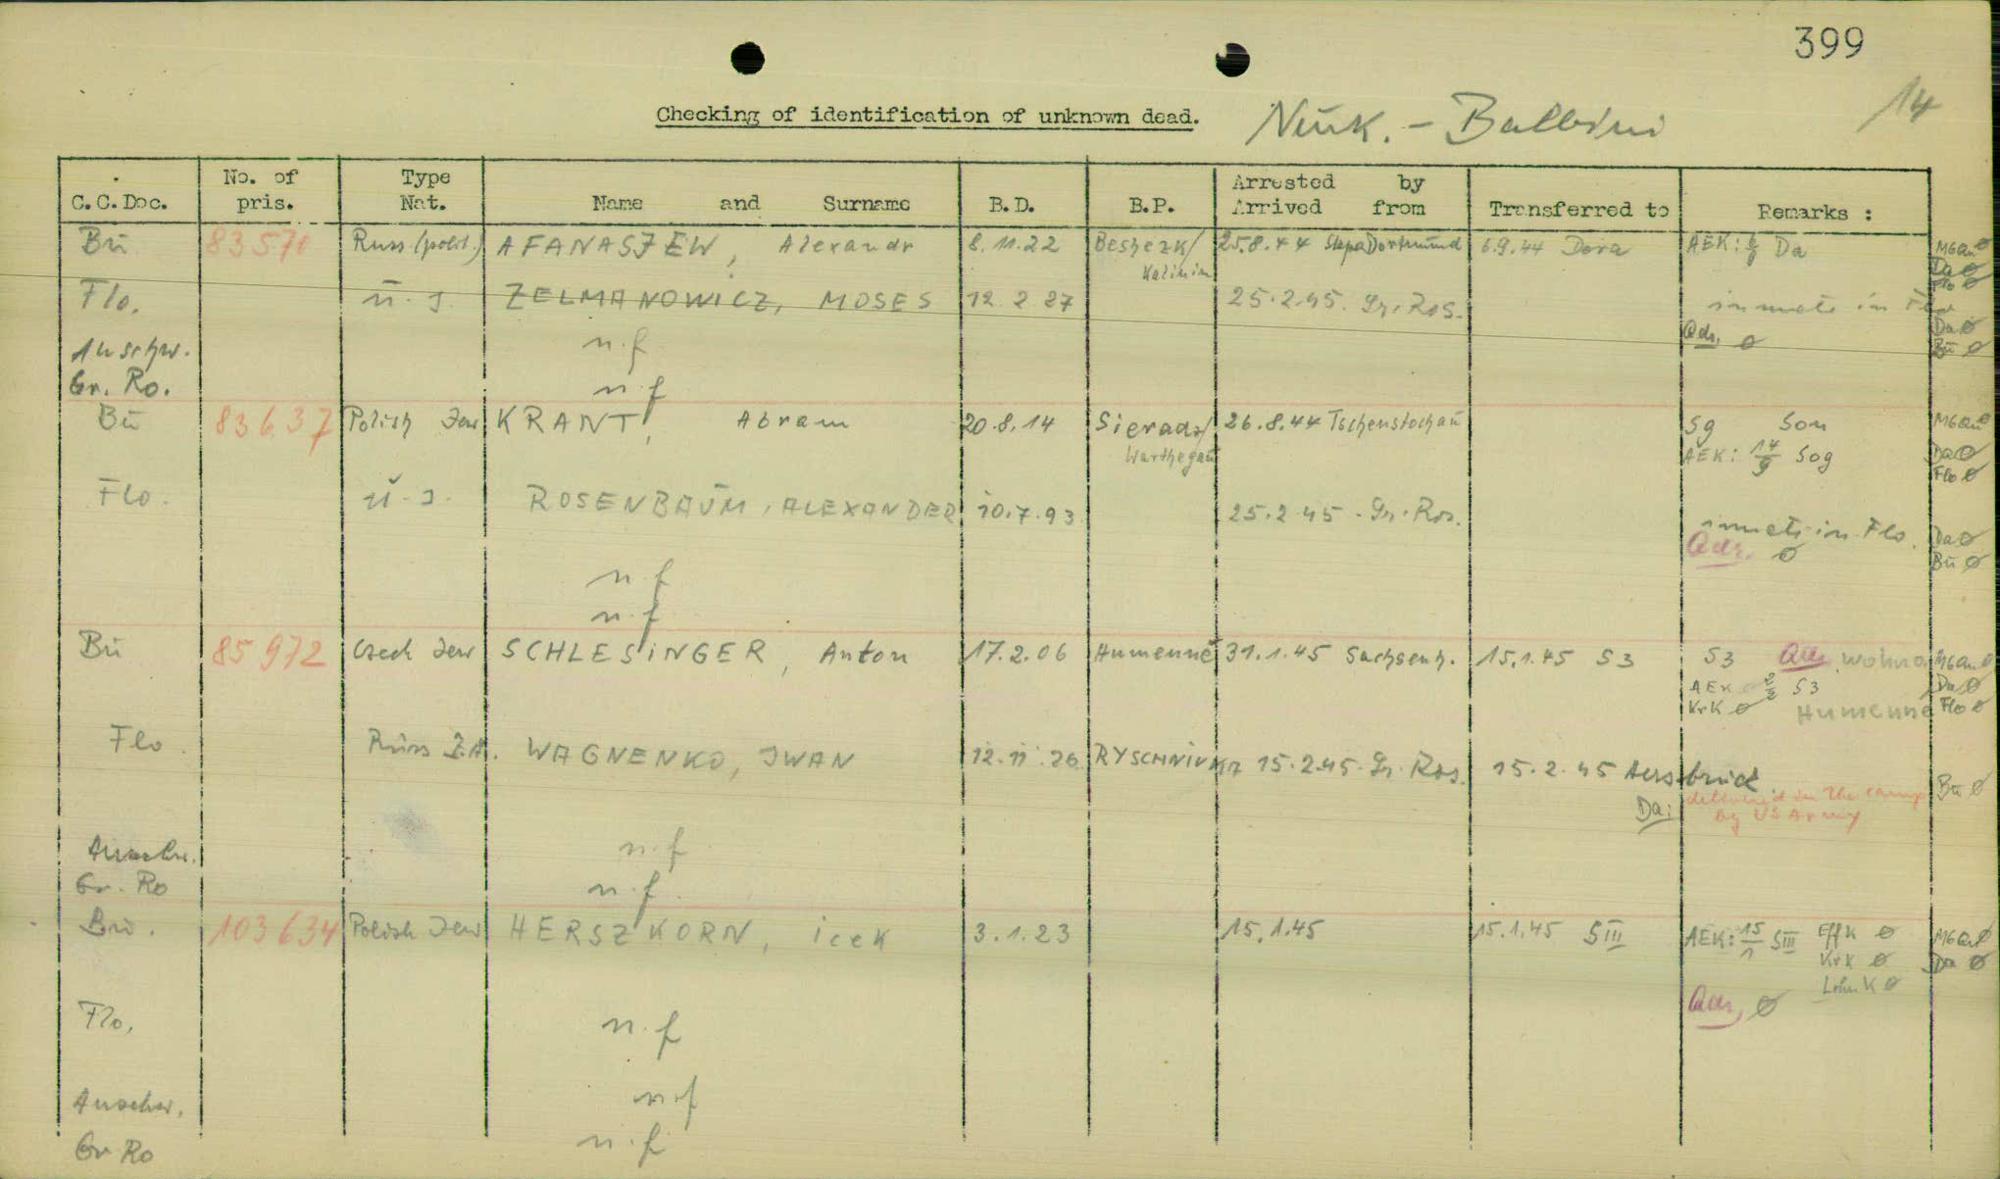 399
14
Checking of identification of unknown dead. Neuk. - Balbini
C.C.Doc. No. of pris. Type Nat. Name and Surname B.D. B.P. Arrested by Arrived from Transferred to Remarks :
Bu 83571 Russ (polit.) AFANASJEW, Alexandr 8.11.22 Beshezk/ Kalinin 25.8.44 Stapo Dortmund 6.9.44 Dora AEK: Da
Da ø
Flo ø
Flo. ZELMANOWICZ, MOSES 12 2 27 25.2.45. Gr. Ros. inmate in Flo
Adr. ø Da ø
Bu ø
Auschw. n.f
Gr. Ro. n.f
Bu 83637 Polish Jew KRANT, Abram 20.8.14 Sieradz/ Warthegau 26.8.44 Tschenstochau
AEK: 14/9 Sog Da ø
Flo ø
Flo. ROSENBAUM, ALEXANDER 10.7.93 25.2.45. Gr. Ros.
inmate in Flo. Da ø
Adr. ø Bu ø
n.f
n.f
Bu 85972 Czech Jew SCHLESINGER, Anton 17.2.06 Humenné 31.1.45 Sachsenh. 15.1.45 S3 S3
AEK 2/2 S3 Da ø
KrK ø Humenné Flo ø
Flo. WAGNENKO, IWAN 12.11.26 15.2.45. Gr. Ros. 15.2.45 Hersbruck
Da: in the camp by US Army Bu ø
Auschw. n.f
Gr. Ro n.f.
Bu. 103634 Polish Jew HERSZKORN, icek 3.1.23 15.1.45 15.1.45 SIII AEK: 15/1 SIII EffK ø
KrK ø Da ø
Adr, ø
Flo, n.f
Auschw. n.f
Gr Ro n.f